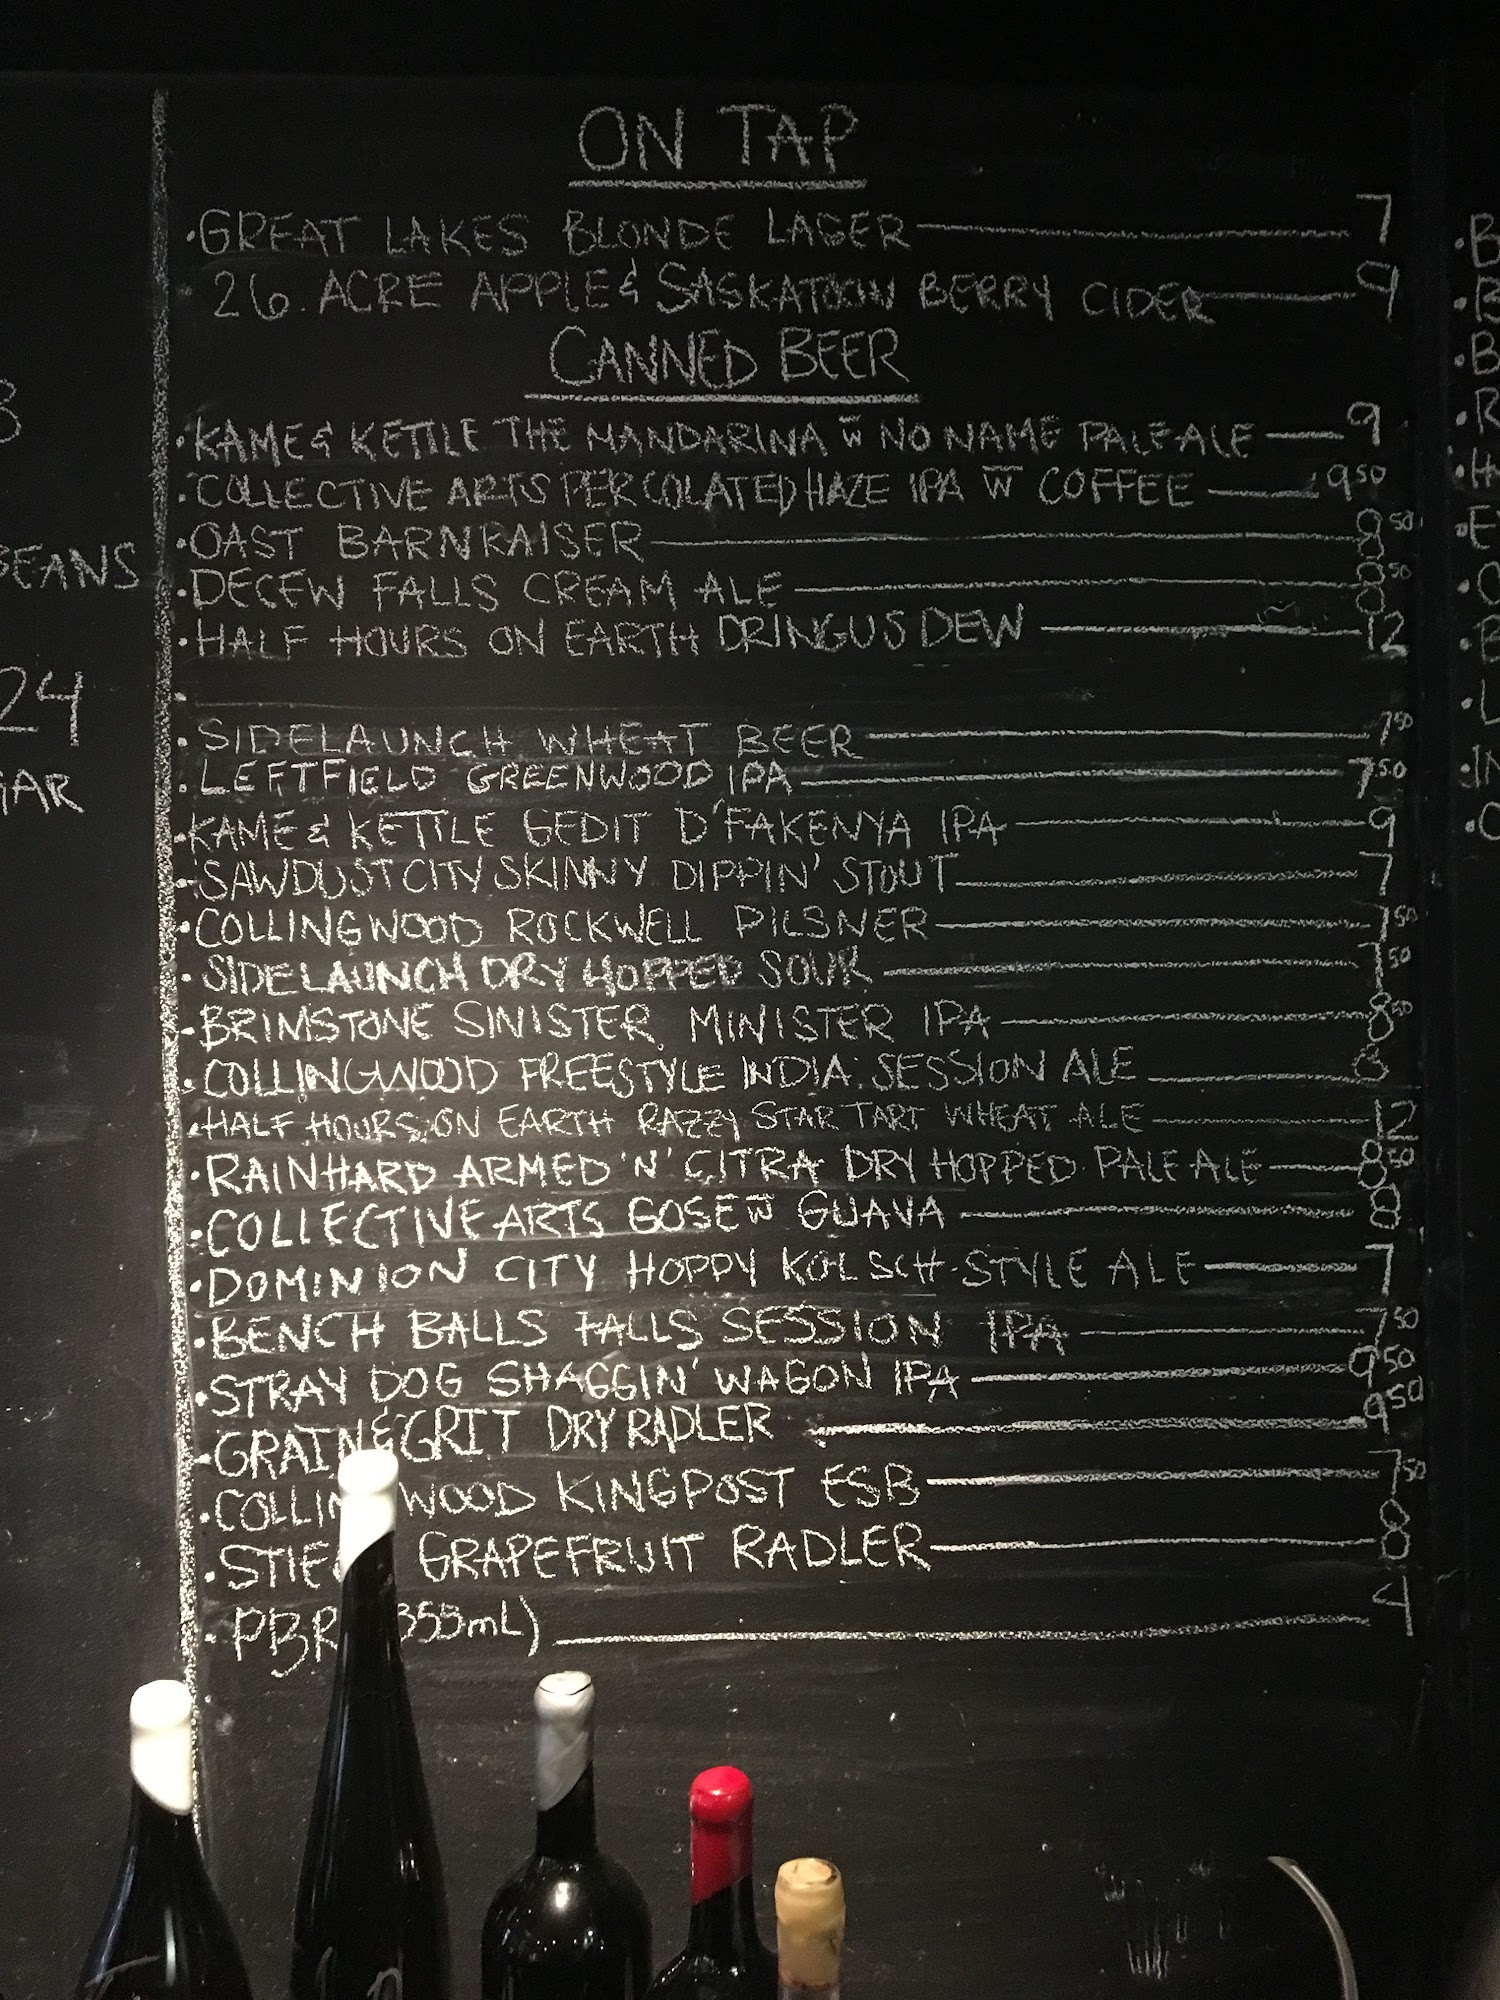 ON TAP
·GREAT LAKES BLONDE LAGER 7
26. ACRE APPLE & SASKATOON BERRY CIDER 9
CANNED BEER
·KAME & KETTLE THE MANDARINA w̅ NO NAME PALE ALE 9
·COLLECTIVE ARTS PERCOLATED HAZE IPA w̅ COFFEE 9⁵⁰
·OAST BARNRAISER 8⁵⁰
·DECEW FALLS CREAM ALE 8⁵⁰
·HALF HOURS ON EARTH DRINGUS DEW 12
·
·SIDELAUNCH WHEAT BEER 7⁵⁰
·LEFTFIELD GREENWOOD IPA 7⁵⁰
·KAME & KETTLE GEDIT D'FAKENYA IPA 9
·SAWDUST CITY SKINNY DIPPIN' STOUT 7
·COLLINGWOOD ROCKWELL PILSNER 7⁵⁰
·SIDELAUNCH DRY HOPPED SOUR 7⁵⁰
·BRIMSTONE SINISTER MINISTER IPA 8⁵⁰
·COLLINGWOOD FREESTYLE INDIA SESSION ALE 8
·HALF HOURS ON EARTH RAZZY STAR TART WHEAT ALE 12
·RAINHARD ARMED 'N' CITRA DRY HOPPED PALE ALE 8⁵⁰
·COLLECTIVE ARTS GOSE w̅ GUAVA 8
·DOMINION CITY HOPPY KOLSCH-STYLE ALE 7
·BENCH BALLS FALLS SESSION IPA 7⁵⁰
·STRAY DOG SHAGGIN' WAGON IPA 9⁵⁰
·GRAIN & GRIT DRY RADLER 9⁵⁰
·COLLIN WOOD KINGPOST ESB 7⁵⁰
·STIE GRAPEFRUIT RADLER 8
·PBR 355mL) 4
BEANS
24
GAR